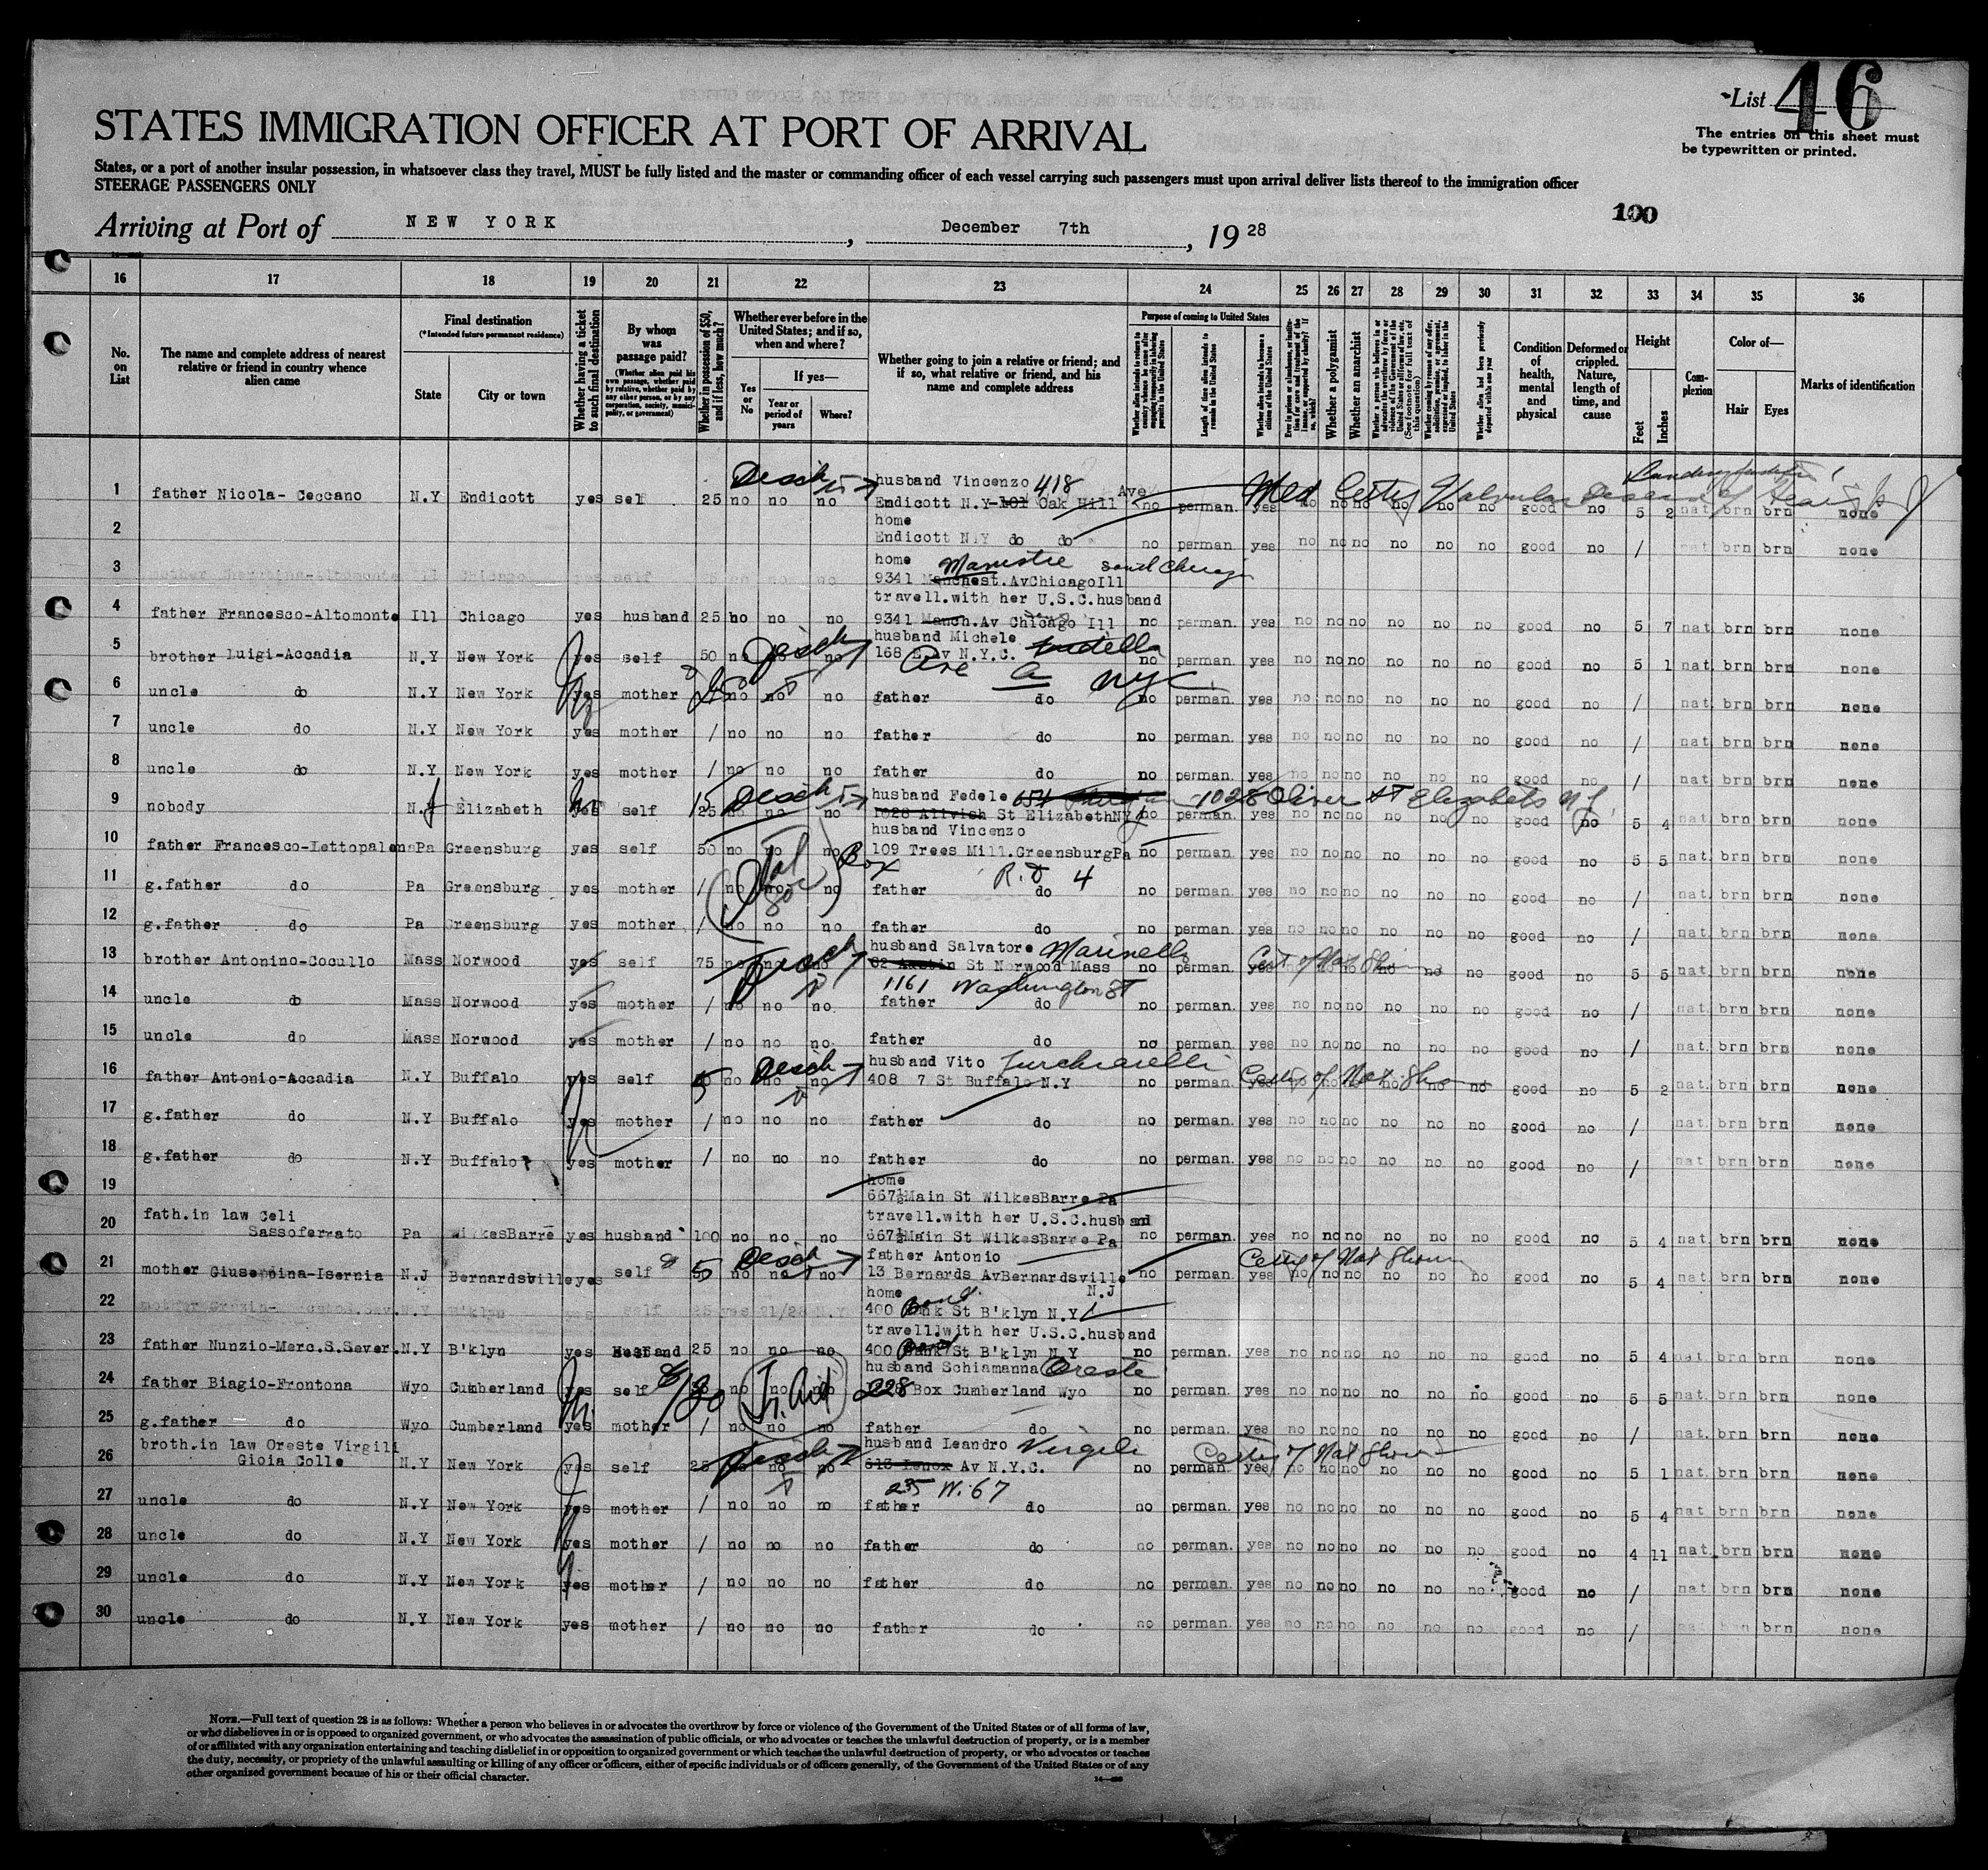 List 46
The entries on this sheet must
be typewritten or printed.
STATES IMMIGRATION OFFICER AT PORT OF ARRIVAL
States, or a port of another insular possession, in whatsoever class they travel, MUST be fully listed and the master or commanding officer of each vessel carrying such passengers must upon arrival deliver lists thereof to the immigration officer
STEERAGE PASSENGERS ONLY
100
Arriving at Port of NEW YORK, December 7th, 1928
16 17 18 19 20 21 22 23 24 25 26 27 28 29 30 31 32 33 34 35 36
No. on List
The name and complete address of nearest relative or friend in country whence alien came
Final destination
(*Intended future permanent residence)
State
City or town
Whether having a ticket to such final destination
By whom was passage paid?
(Whether alien paid his own passage, whether paid by relative, whether paid by any other person, or by any corporation, society, municipality, or government)
Whether in possession of $50, and if less, how much?
Whether ever before in the United States; and if so, when and where?
Yes or No
If yes—
Year or period of years
Where?
Whether going to join a relative or friend; and if so, what relative or friend, and his name and complete address
Purpose of coming to United States
Length of time alien intends to remain in the United States
Whether alien intends to become a citizen of the United States
Whether a polygamist
Whether an anarchist
(See footnote for full text of this question)
Whether alien had been previously deported within one year
Condition of health, mental and physical
Deformed or crippled. Nature, length of time, and cause
Height
Feet
Inches
Complexion
Color of—
Hair
Eyes
Marks of identification
1 father Nicola- Ceccano N.Y Endicott yes self 25 no no no husband Vincenzo 418
Endicott N.Y-101 Oak Hill Ave no perman. yes no no no no no no good no 5 2 nat brn brn none
Med Certif Valvular Disease of Heart
2 home
Endicott N.Y do do no perman. yes no no no no no no good no / nat brn brn none
3 Chicago yes self home Manistee South Chicago
9341 Manchest.AvChicagoIll
4 father Francesco-Altomonte Ill Chicago yes husband 25 no no no travell.with her U.S.C.husband
9341 Manch.Av Chicago Ill no perman. yes no no no no no no good no 5 7 nat. brn brn none
5 brother Luigi-Accadia N.Y New York yes self 50 no no no husband Michele
168 E Av N.Y.C. no perman. yes no no no no no no good no 5 1 nat. brn brn none
Ave A NYC
6 uncle do N.Y New York yes mother no no no father do no perman. yes no no no no no no good no / nat. brn brn none
7 uncle do N.Y New York yes mother / no no no father do no perman. yes no no no no no no good no / nat. brn brn none
8 uncle do N.Y New York yes mother / no no no father do no perman. yes no no no no no no good no / nat. brn brn none
9 nobody N.J Elizabeth yes self 25 no no no husband Fedele 654 1028 Oliver ST Elizabeth N J
1028 Allvish St ElizabethNY no perman. yes no no no no no no good no 5 4 nat. brn brn none
10 father Francesco-Lettopalena Pa Greensburg yes self 50 no no no husband Vincenzo
Box 109 Trees Mill.GreensburgPa no perman. yes no no no no no no good no 5 5 nat. brn brn none
R.D 4
11 g.father do Pa Greensburg yes mother / no no no father do no perman. yes no no no no no no good no / nat. brn brn none
12 g.father do Pa Greensburg yes mother / no no no father do no perman. yes no no no no no no good no / nat. brn brn none
13 brother Antonino-Cocullo Mass Norwood yes self 75 no no no husband Salvatore Marinelli
62 Austin St Norwood Mass no perman. yes no no no no no no good no 5 5 nat. brn brn none
Cert of Nat Shown
1161 Washington ST
14 uncle do Mass Norwood yes mother / no no no father do no perman. yes no no no no no no good no / nat. brn brn none
15 uncle do Mass Norwood yes mother / no no no father do no perman. yes no no no no no no good no / nat. brn brn none
16 father Antonio-Accadia N.Y Buffalo yes self no no no husband Vito
408 7 St Buffalo N.Y no perman. yes no no no no no no good no 5 2 nat. brn brn none
Certif of Nat Shown
17 g.father do N.Y Buffalo yes mother / no no no father do no perman. yes no no no no no no good no / nat. brn brn none
18 g.father do N.Y Buffalo yes mother / no no no father do no perman. yes no no no no no no good no / nat. brn brn none
19 home
667½Main St WilkesBarre Pa
20 fath.in law Celi
Sassoferrato Pa WilkesBarre yes husband 100 no no no travell.with her U.S.C.husband
667½Main St WilkesBarre Pa no perman. yes no no no no no no good no 5 4 nat. brn brn none
21 mother Giuseppina-Isernia N.J Bernardsville yes self no no no father Antonio
13 Bernards AvBernardsville N.J no perman. yes no no no no no no good no 5 4 nat. brn brn none
Certif of Nat Shown
22 N.Y B'klyn yes self 25 yes 21/28 N.Y home
400 Bank St B'klyn N.Y
23 father Nunzio-Merc.S.Sever. N.Y B'klyn yes husband 25 no no no travell.with her U.S.C.husband
400 Bank St B'klyn N.Y no perman. yes no no no no no no good no 5 4 nat. brn brn none
24 father Biagio-Frontona Wyo Cumberland yes self no no no husband Schiamanna Oreste
228 Box Cumberland Wyo no perman. yes no no no no no no good no 5 5 nat. brn brn none
25 g.father do Wyo Cumberland yes mother / no no no father do no perman. yes no no no no no no good no / nat. brn brn none
26 broth.in law Oreste Virgili
Gioia Colle N.Y New York yes self 25 no no no husband Leandro Virgili
613 Lenox Av N.Y.C. no perman. yes no no no no no no good no 5 1 nat. brn brn none
Certif of Nat Shown
235 W. 67
27 uncle do N.Y New York yes mother / no no no father do no perman. yes no no no no no no good no 5 4 nat. brn brn none
28 uncle do N.Y New York yes mother / no no no father do no perman. yes no no no no no no good no 4 11 nat. brn brn none
29 uncle do N.Y New York yes mother / no no no father do no perman. yes no no no no no no good no / nat brn brn none
30 uncle do N.Y New York yes mother / no no no father do no perman. yes no no no no no no good no / nat brn brn none
NOTE.—Full text of question 28 is as follows: Whether a person who believes in or advocates the overthrow by force or violence of the Government of the United States or of all forms of law,
or who disbelieves in or is opposed to organized government, or who advocates the assassination of public officials, or who advocates or teaches the unlawful destruction of property, or is a member
of or affiliated with any organization entertaining and teaching disbelief in or opposition to organized government or which teaches the unlawful destruction of property, or who advocates or teaches
the duty, necessity, or propriety of the unlawful assaulting or killing of any officer or officers, either of specific individuals or of officers generally, of the Government of the United States or of any
other organized government because of his or their official character.